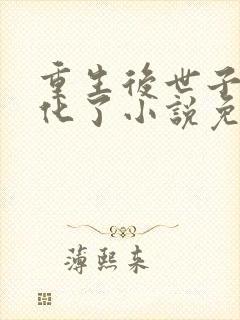 重生後世子
化了小說免
薄熙来